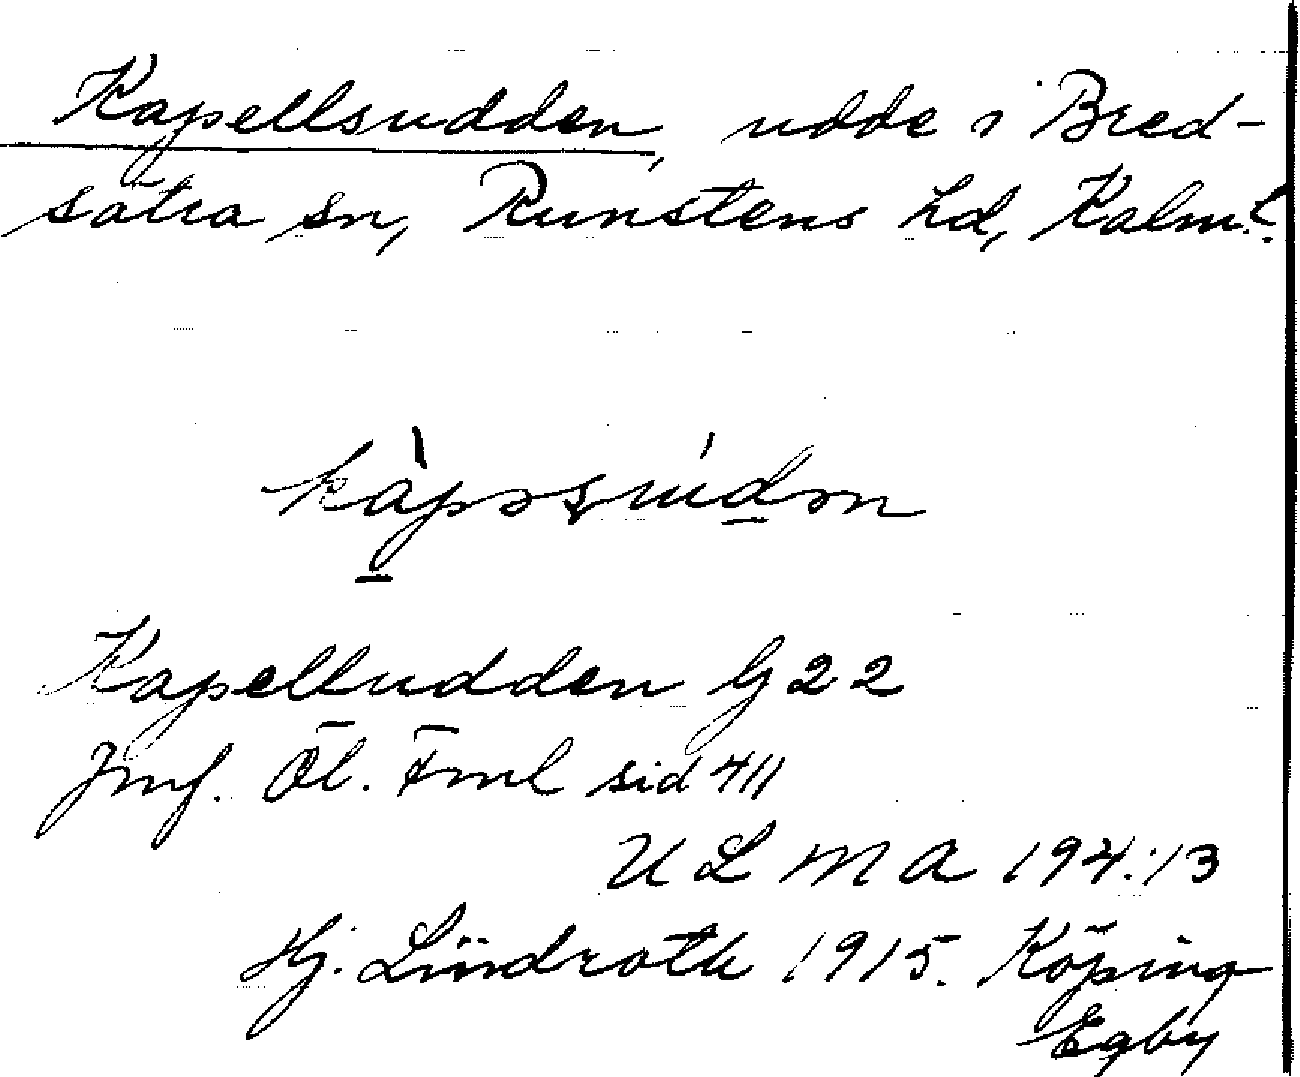 Kapellsudden, udde i Bred-
sätra sn, Runstens hd, Kalm.l.
Kapelludden G 22
Jmf. Öl. Fml sid 411
ULMA 194:13
Hj. Lindroth 1915. Köping
Egby